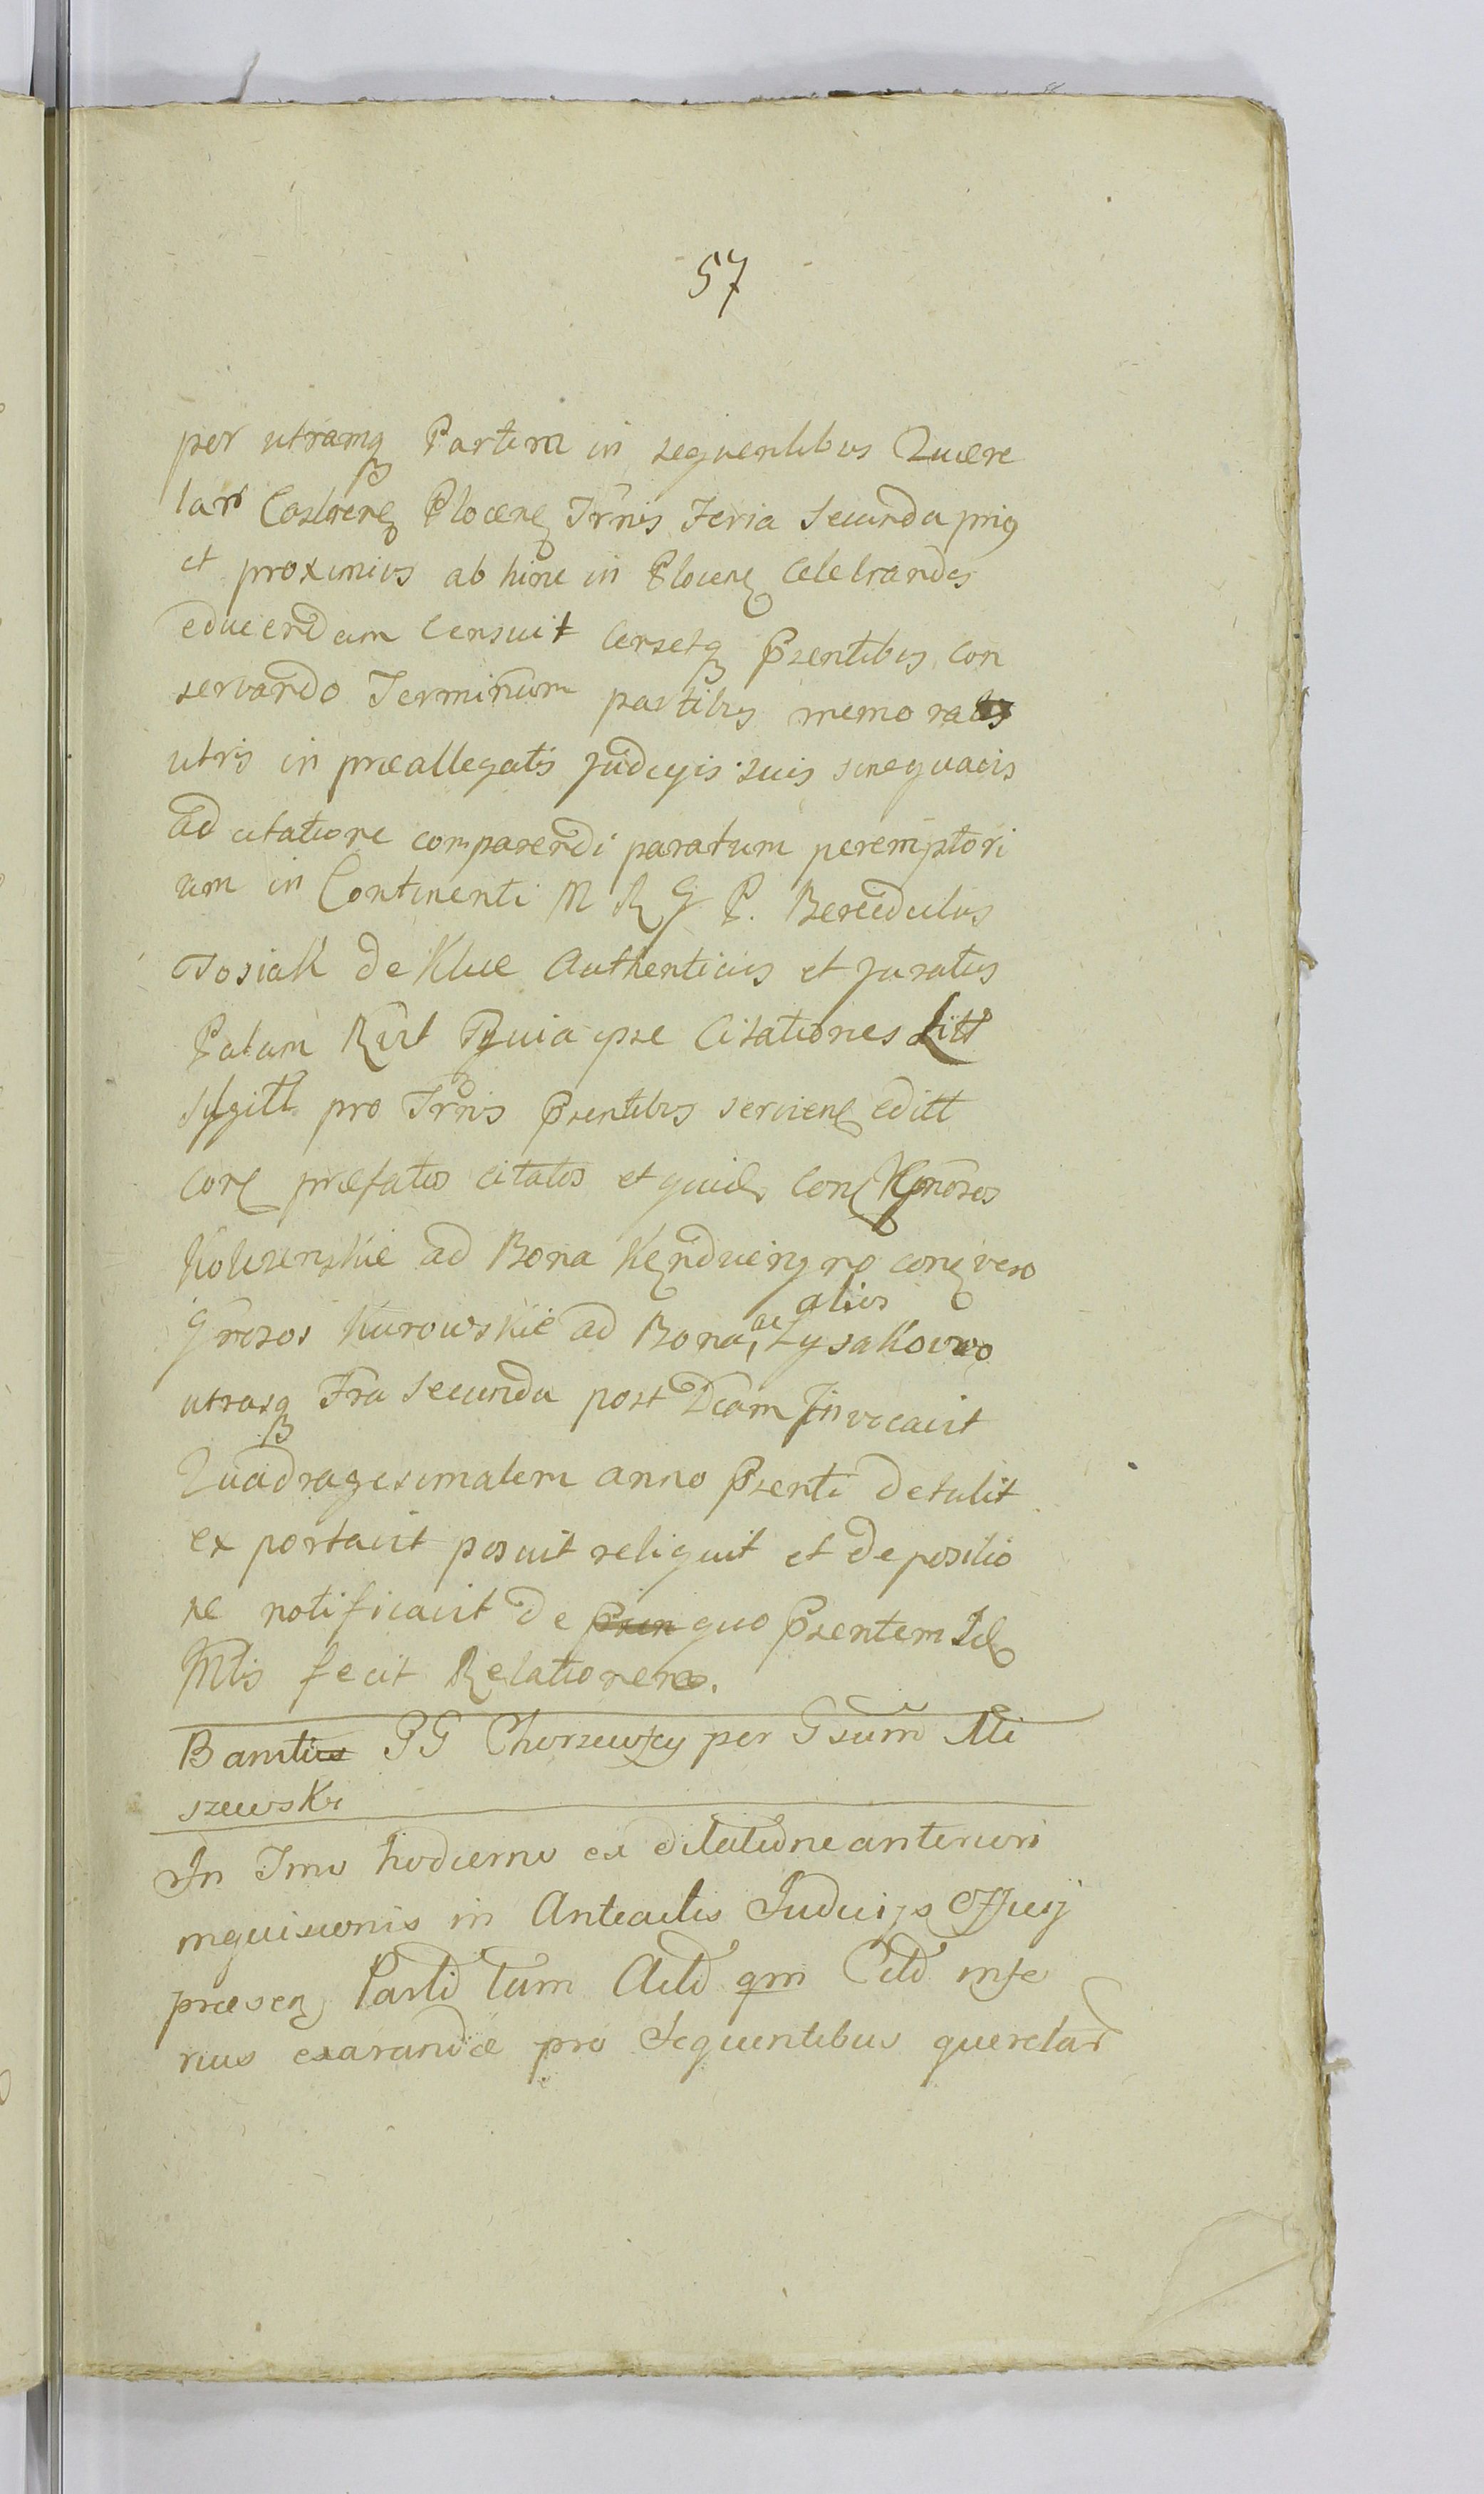 57
per utramq Partem in sequentibus Quere
lar Castrens Plocens Trnis Feria Secunda prius
et proximius ab hinc in Plocens Celebrandis
educendam Censuit Censetq Psentibus con
servando Terminum partibus memoratis
utris in præallegatis judicijs suis sinequavis
adcitatione comparendi paratum peremptori
um in Continenti M R G P.
Tosiak de Kluc Authenticus et juratus
Palam Rcit quia ipse Citationes Litt
Sigill pro Trnis Psentibus serviens editt
con præfatos citatos et quid con Gnosos
ad Bona con vero
Gnosos Kurowskie ad Bona ac alios Lysakowo
utrasq Fra Secunda post Dcam Invocavit
Quadragesimalem anno Psenti detulit
exportavit posuit reliquit et depositio
ne notificavit de quo Psentem Id
Mtis fecit Relationem.
PG Chorzewscy per Gsum Mi
szewski
In Tmo hodierno ex dilatione anteriori
inquisionis in Anteactis Judicijs Officij
præsen Parti tam Acto qm Cito infe
rius exarandæ pro Sequentibus querelar